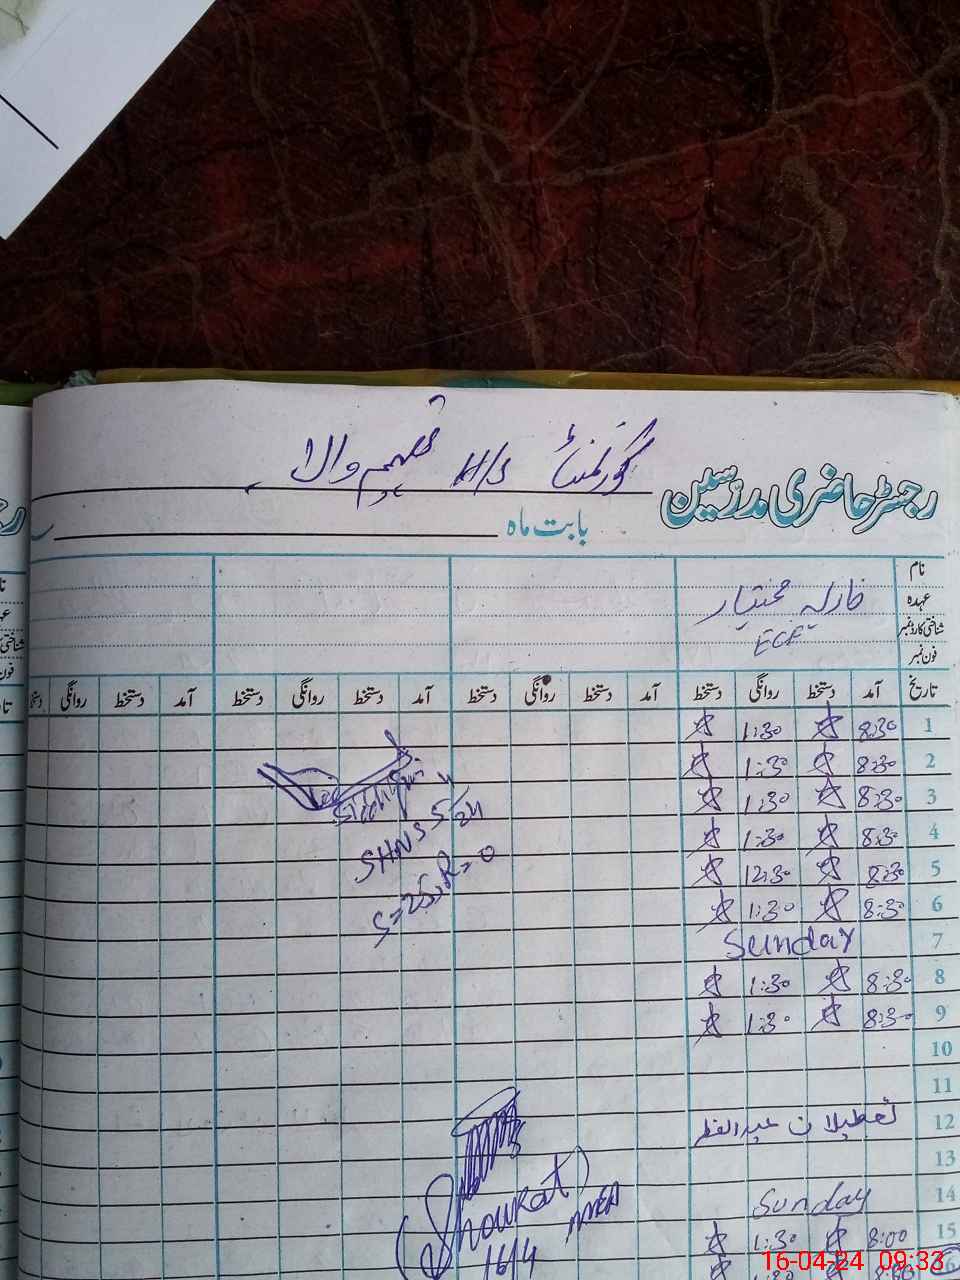 گورنمنٹ H/S
رجسٹر حاضری مدرسین
بابت ماہ
نام
عہدہ
شناختی کارڈ نمبر
فون نمبر
ECE
تاریخ آمد دستخط روانگی دستخط آمد دستخط روانگی دستخط آمد دستخط روانگی دستخط آمد دستخط روانگی دستخط
1 8:30 1:30
2 8:30 1:30
3 8:30 1:30
4 8:30 1:30
5 8:30 12:30
6 8:30 1:30
7 Sunday
8 8:30 1:30
9 8:30 1:30
10
11
12 تعطیلات عیدالفطر
13
14 Sunday
15 8:00 1:30
SHNS 5/4/24
S=25, R=0
(Shoukat)
16/4
16-04-24 09:33